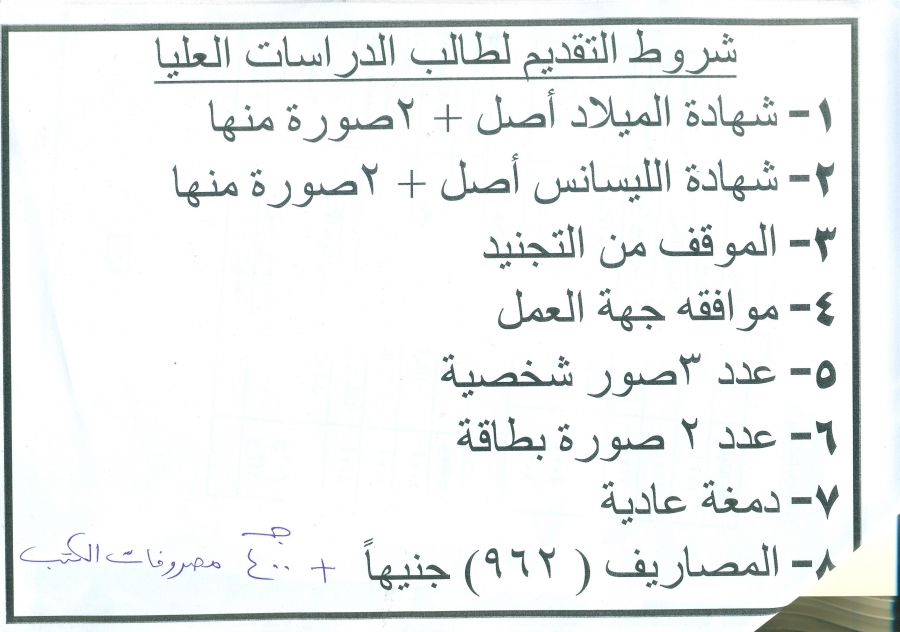 شروط التقديم لطالب الدراسات العليا
١- شهادة الميلاد أصل + ٢صورة منها
٢- شهادة الليسانس أصل + ٢صورة منها
٣- الموقف من التجنيد
٤- موافقه جهة العمل
٥- عدد ٣صور شخصية
٦- عدد ٢ صورة بطاقة
٧- دمغة عادية
٨- المصاريف ( ٩٦٢) جنيهاً + ٤٠٠ جـ مصروفات الكتب